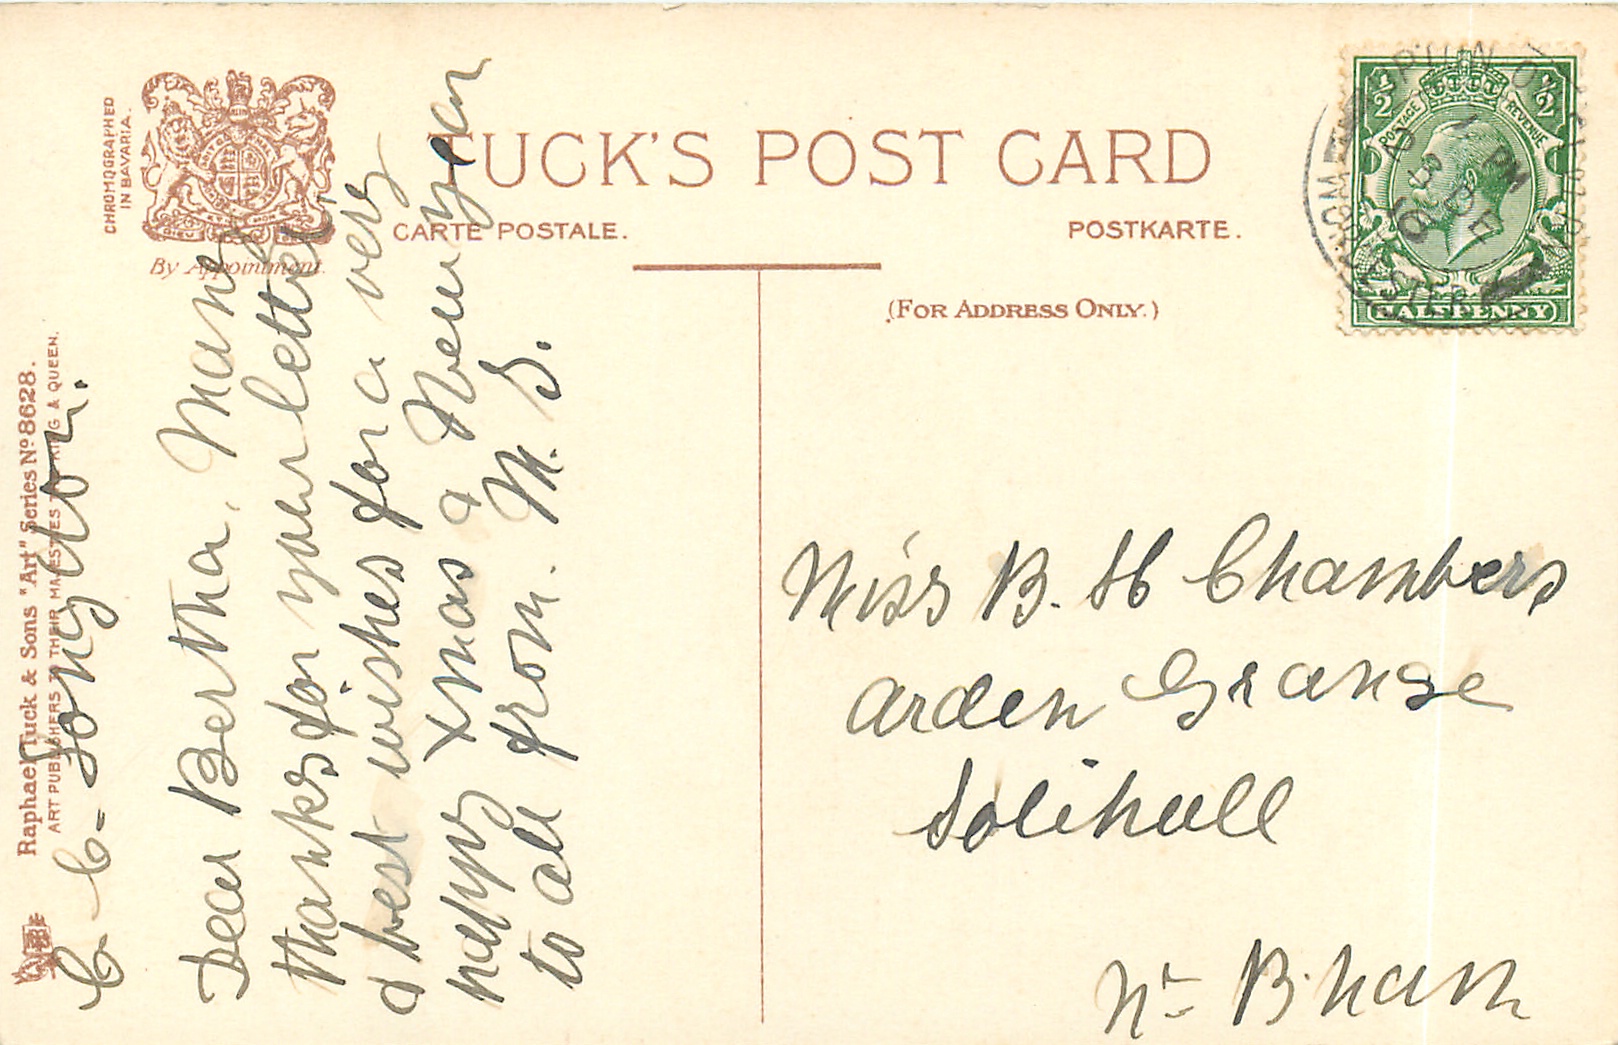 TUCK'S POST CARD
CARTE POSTALE.
POSTKARTE.
(FOR ADDRESS ONLY.)
CHROMOGRAPHED
IN BAVARIA.
By Appointment.
Raphael Tuck & Sons "Art" Series No 8628.
ART PUBLISHERS TO THEIR MAJESTIES THE KING & QUEEN.
Longdon.
Dear Bertha. Many
thanks for your letter
& best wishes for a very
happy Xmas & New year
to all from. M. S.
Miss B. H Chambers
Arden Grange
Solihull
Nr B.ham
1/2 1/2
POSTAGE REVENUE
HALFPENNY
PM